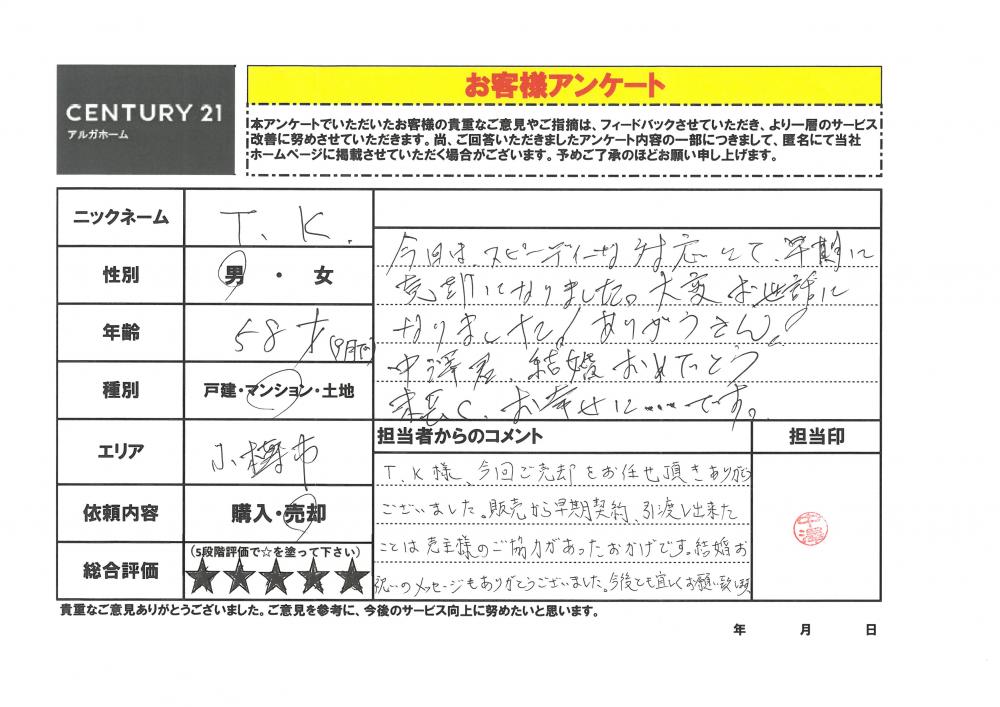 CENTURY 21
アルガホーム
お客様アンケート
本アンケートでいただいたお客様の貴重なご意見やご指摘は、フィードバックさせていただき、より一層のサービス
改善に努めさせていただきます。尚、ご回答いただきましたアンケート内容の一部につきまして、匿名にて当社
ホームページに掲載させていただく場合がございます。予めご了承のほどお願い申し上げます。
ニックネーム
T. K.
性別
男 ・ 女
年齢
58才
種別
戸建・マンション・土地
エリア
小樽市
依頼内容
購入・売却
総合評価
(5段階評価で☆を塗って下さい)
★★★★★
今回は、スピーディーな対応にて、早期に
売却になりました。大変お世話に
なりました!ありがうさん
中澤君、結婚おめでとう
末長く、お幸せに…です。
担当者からのコメント
担当印
T.K様、今回ご売却をお任せ頂きありがとう
ございました。販売から早期契約、引渡し出来た
ことは売主様のご協力があったおかげです。結婚お
祝いのメッセージもありがとうございました。今後とも宜しくお願い致します
中澤
貴重なご意見ありがとうございました。ご意見を参考に、今後のサービス向上に努めたいと思います。
年 月 日